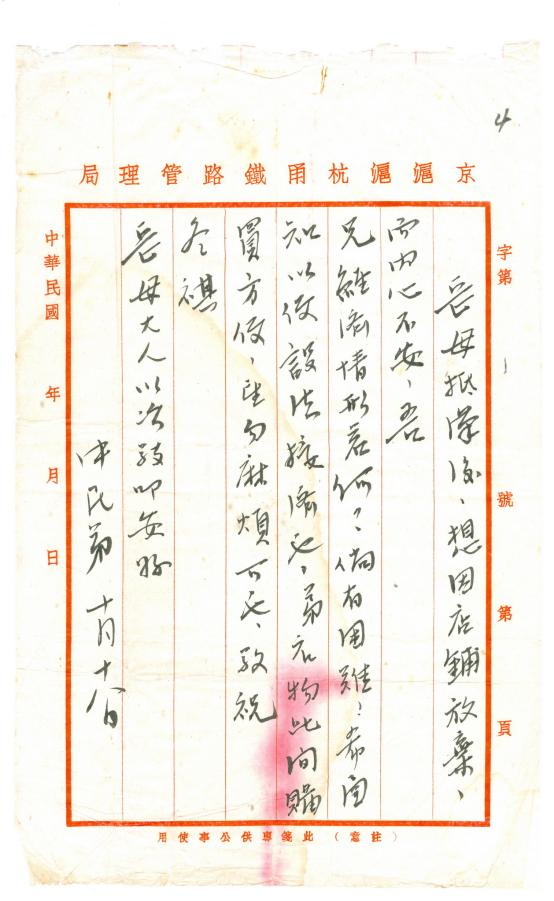 4
京滬滬杭甬鐵路管理局
字第 號 第 頁
岳母抵漢後、想因店鋪放棄、
而內心不安、吾
兄經濟情形若何?倘有困難、希函
知以便設法接濟也、弟衣物此間購
買方便、望勿麻煩可也、敬祝
冬祺
岳母大人以次敬叩安好
中民弟 十月十八日
中華民國 年 月 日
(注意)此箋專供公事使用